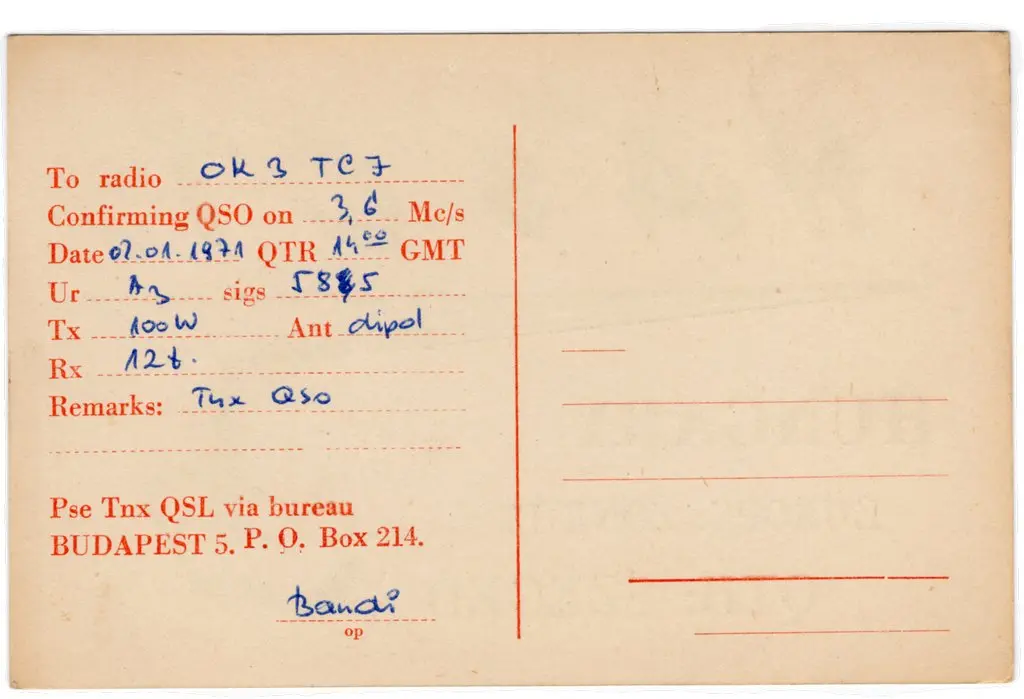 To radio OK 3 TC7
Confirming QSO on 3,6 Mc/s
Date 02.01.1971 QTR 14⁰⁰ GMT
Ur A3 sigs 585
Tx 100W Ant dipol
Rx 12t.
Remarks: Tnx QSO
Pse Tnx QSL via bureau
BUDAPEST 5. P. O. Box 214.
Bandi
op